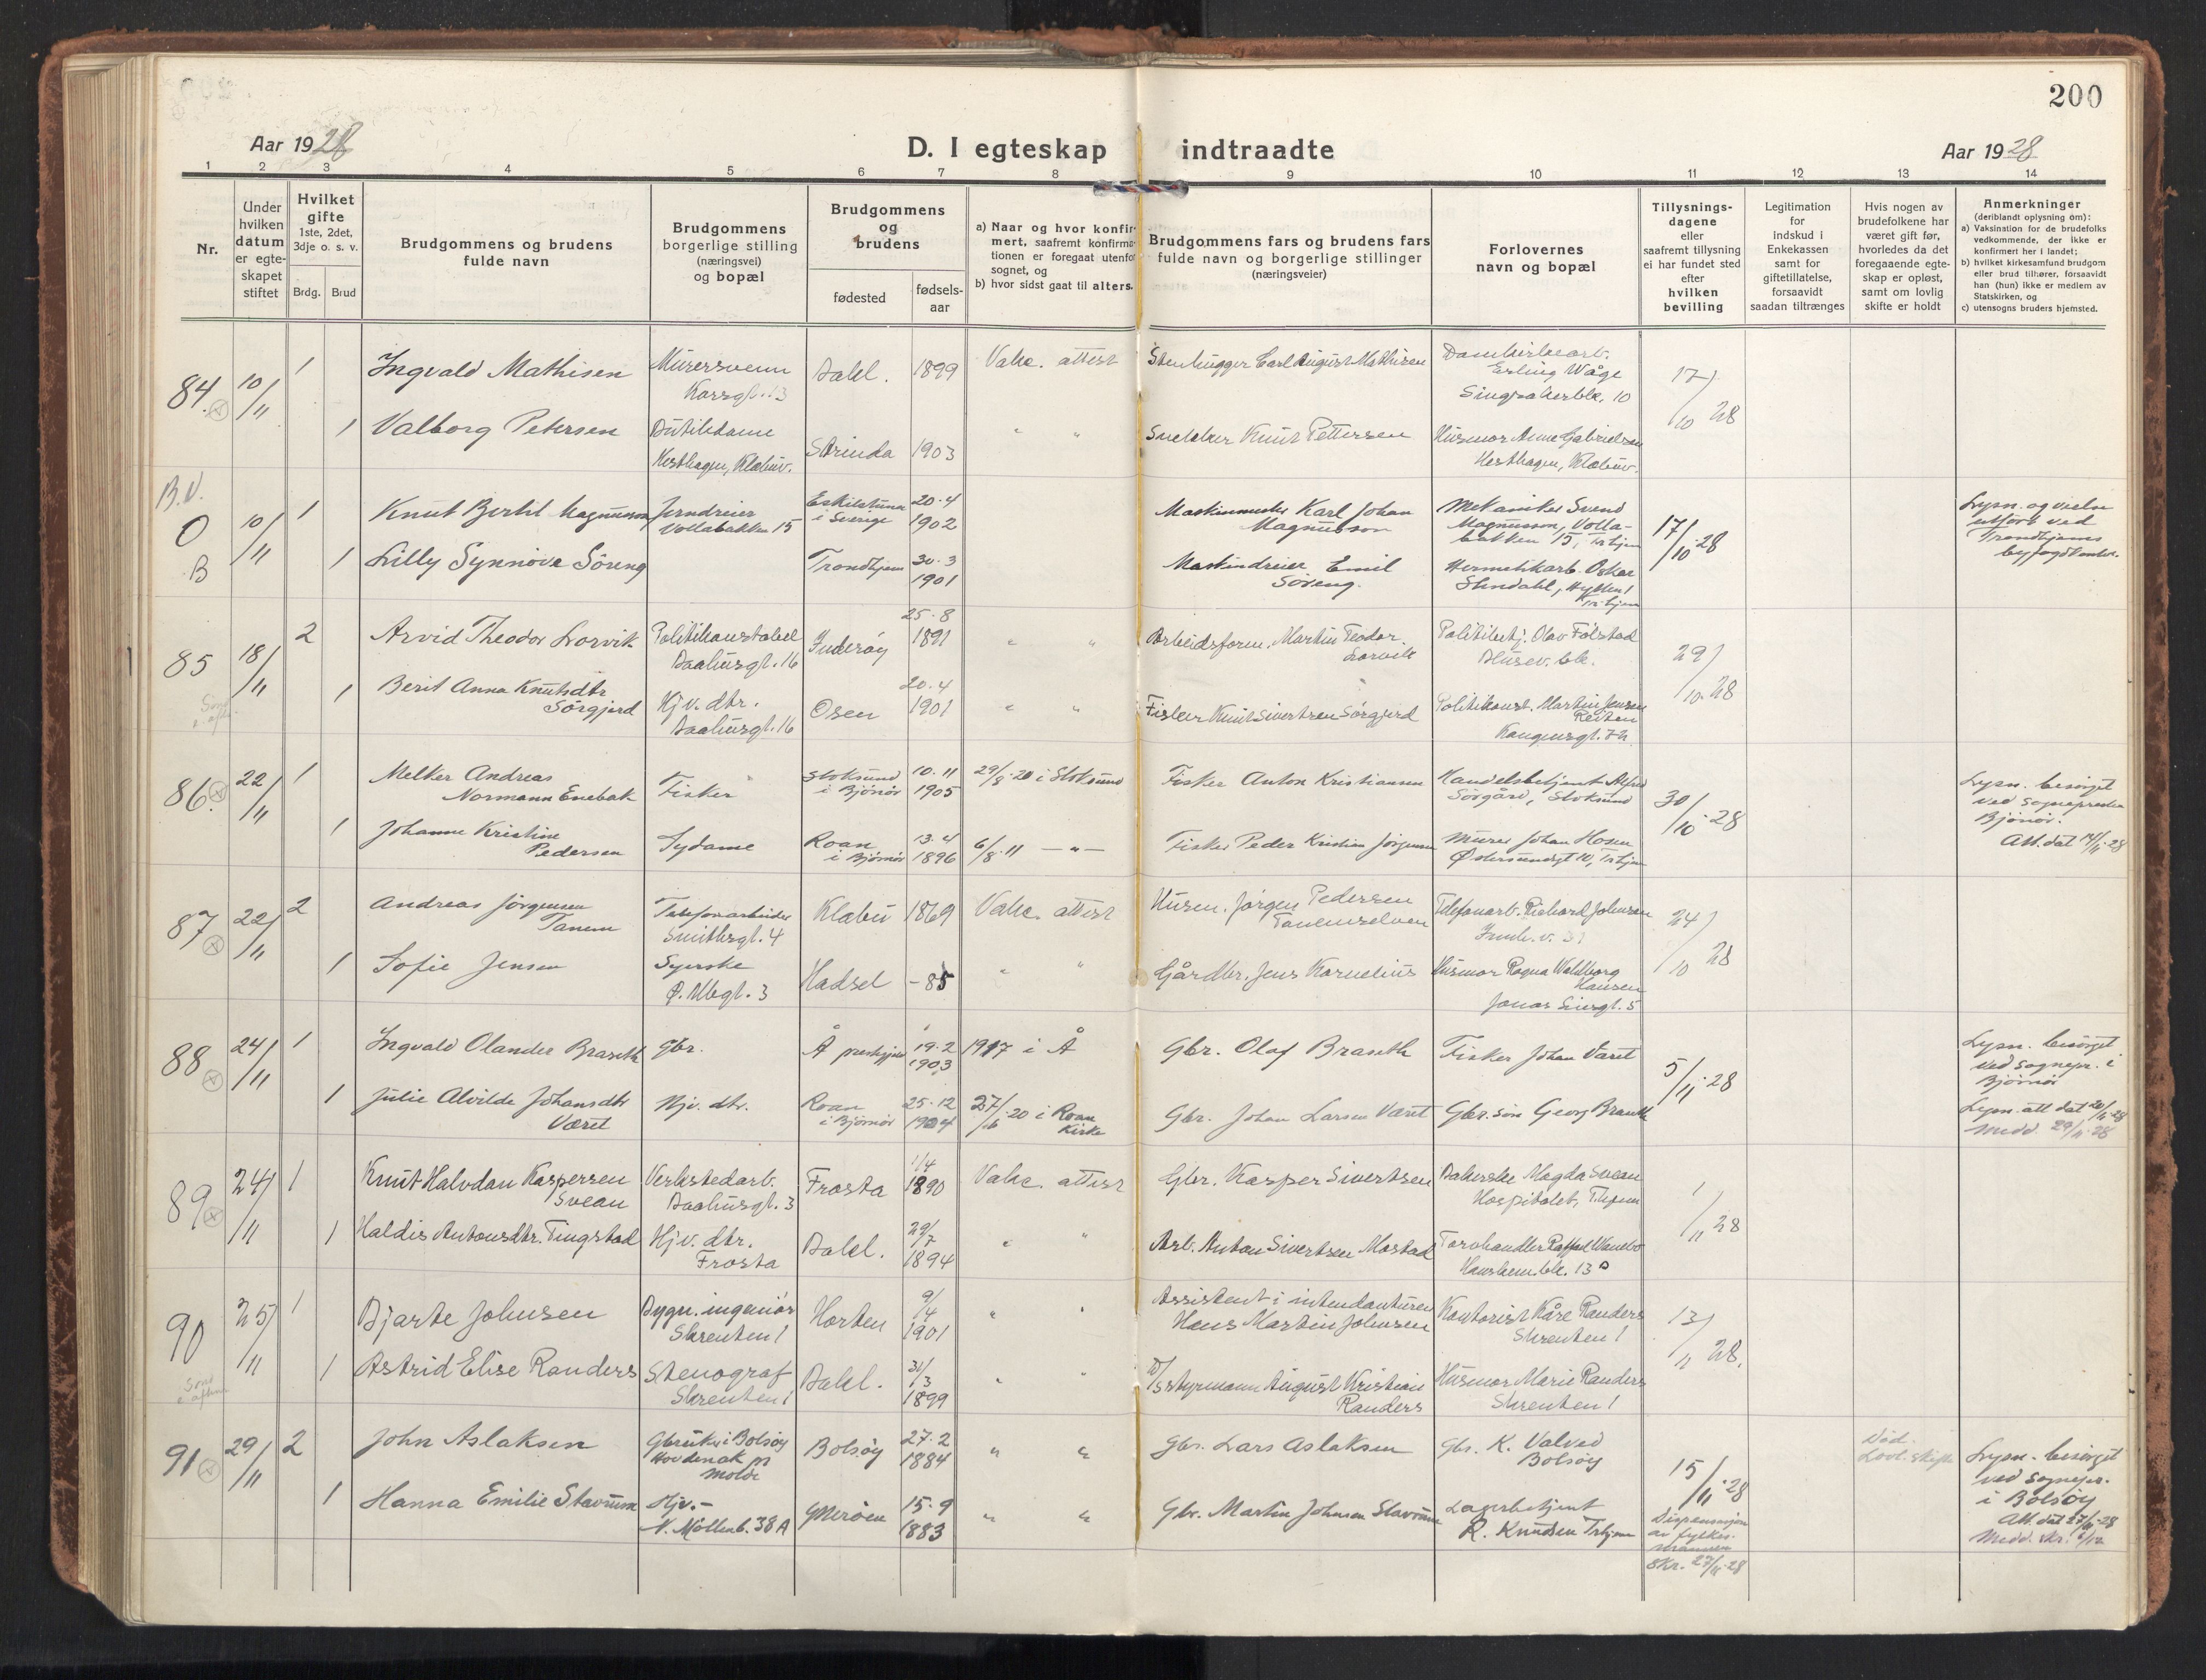 200
Aar 1928
D. I egteskap indtraadte
Aar 1928
1 2 3 4 5 6 7 8 9 10 11 12 13 14
Nr.
Under hvilken datum er egteskapet stiftet
Hvilket gifte 1ste, 2det, 3dje o. s. v.
Brdg. Brud
Brudgommens og brudens fulde navn
Brudgommens borgerlige stilling (næringsvei) og bopæl
Brudgommens og brudens
fødested
fødselsaar
a) Naar og hvor konfirmert, saafremt konfirmationen er foregaat utenfor sognet, og
b) hvor sidst gaat til alters.
Brudgommens fars og brudens fars fulde navn og borgerlige stillinger (næringsveier)
Forlovernes navn og bopæl
Tillysningsdagene eller saafremt tillysning ei har fundet sted efter hvilken bevilling
Legitimation for indskud i Enkekassen samt for giftetillatelse, forsaavidt saadan tiltrænges
Hvis nogen av brudefolkene har været gift før, hvorledes da det foregaaende egteskap er opløst, samt om lovlig skifte er holdt
Anmerkninger
(deriblandt oplysning om):
a) Vaksination for de brudefolks vedkommende, der ikke er konfirmert her i landet;
b) hvilket kirkesamfund brudgom eller brud tilhører, forsaavidt han (hun) ikke er medlem av Statskirken, og
c) utensogns bruders hjemsted.
84. 10/11 1 Ingvald Mathisen Murersvenn Dahl. 1899 Vakc. attest Stenhugger Carl August Mathisen Erling Våge Singsakerbk. 10 17/10 28
1 Valborg Petersen Butikdame Hesthagen, Klæbuv. Strinda 1903 " " Snekker Knut Pettersen Husmor Anne Gabrielsen Hesthagen, Klæbuv.
B.V.
0 10/11 1 Knut Bertil Magnusson Jerndreier Vollabakken 15 Eskilstuna i Sverige 20-4 1902 Maskinmester Karl Johan Magnusson Mekaniker Svend Magnusson, Vollabakken 15, Trhjem 17/10-28 Lysn. og vielse utført ved Trondhjems byfogdembe.
B 1 Lilly Synnöve Söreng Trondhjem 30-3 1901 Maskindreier Emil Söreng. Hermetikarb. Oskar Stendahl,
85 18/11 2 Arvid Theodor Lorvik Politikonstabel Inderøy 25-8 1891 " " Arbeidsform. Martin Teodor Lorvik Politibetj. Olav Følstad 29/10-28
1 Berit Anna Knutsdtr Sørgjerd Hjv. dtr. Osen 20-4 1901 " " Fisker Knut Sivertsen Sørgjerd Politikonst. Martin Jensen
86. 22/11 1 Melker Andreas Normann Enebak Fisker Stoksund i Bjönör 10-11 1905 29/8-20 i Stoksund Fisker Anton Kristiansen Handelsbetjent Alfred Sörgård, Stoksund 30/10-28 Lysn. besörget ved sognepresten Bjönör. Att. dat 14/11-28
1 Johanne Kristine Pedersen Sydame Roan i Bjørnör 13-4 1896 6/8-11 — " — Fisker Peder Kristian Jörgensen Murer Johan Hosen Østersundsgt 10, Trhjem
87 22/11 2 Andreas Jörgensen Tanem Telefonarbeider Smithsgt. 4 Klæbu 1869 Vakc. attest Husm. Jørgen Pedersen Tanemselven Telefonarb. Richard Johnsen 24/10 28
1 Sofie Jensen Syerske Hadsel -85 " " Gårdbr. Jens Kornelius Husmor Ragna Waldborg Hansen
88 24/11 1 Ingvald Olander Braseth gbr. Å prestegjeld 19-2 1903 1917 i Å Gbr. Olaf Braseth Fisker Johan Været 5/11-28 Lysn. besörget ved sognepr. i Bjørnör
1 Julie Alvilde Johansdtr Været Hjv. dtr. Roan i Bjørnör 25-12 1904 27/6-20 i Roan Kirke Gbr. Johan Larsen Været Gbr. sön Georg Braseth Lysn. att dat 20/11-28 Medd. 29/11-28
89 24/11 1 Knut Halvdan Kaspersen Svean Verkstedarb. Frosta 1/4 1890 Vakc. attest Gbr. Kasper Sivertsen Magda Svean Hospitalet, Thjem 1/11 28
1 Haldis Antonsdtr. Tingstad Hjv. dtr. Frosta Dahl. 29/7 1894 " " Arb. Anton Sivertsen Mostad Torvhandler
90 25/11 1 Bjarte Johnsen Bygn. ingeniør Skrenten 1 Horten 9/4 1901 " " Assistent i intendanturen Hans Martin Johnsen Kontorist Kåre Randers Skrenten 1 13/11 28.
1 Astrid Elise Randers Stenograf Skrenten 1 Dahl. 31/3 1899 " " styrmann August Kristian Randers Husmor Marie Randers Skrenten 1
91 29/11 2 John Aslaksen Gbruker i Bolsöy Hovdenak pr Molde Bolsöy 27-2 1884 " " Gbr. Lars Aslaksen Gbr. K. Valved Bolsöy 15/11-28 Död. Lovl. skifte Lysn. besörget ved sognepr. i Bolsöy Att. dat 27/11-28
1 Hanna Emilie Stavrum Hjv.- N. Möllenb. 38A 15-9 1883 " " Gbr. Martin Johnsen Stavrum Lagerbetjent R. Knudsen Trhjem Dispensasjon av fylkesmannen Skr. 27/11-28